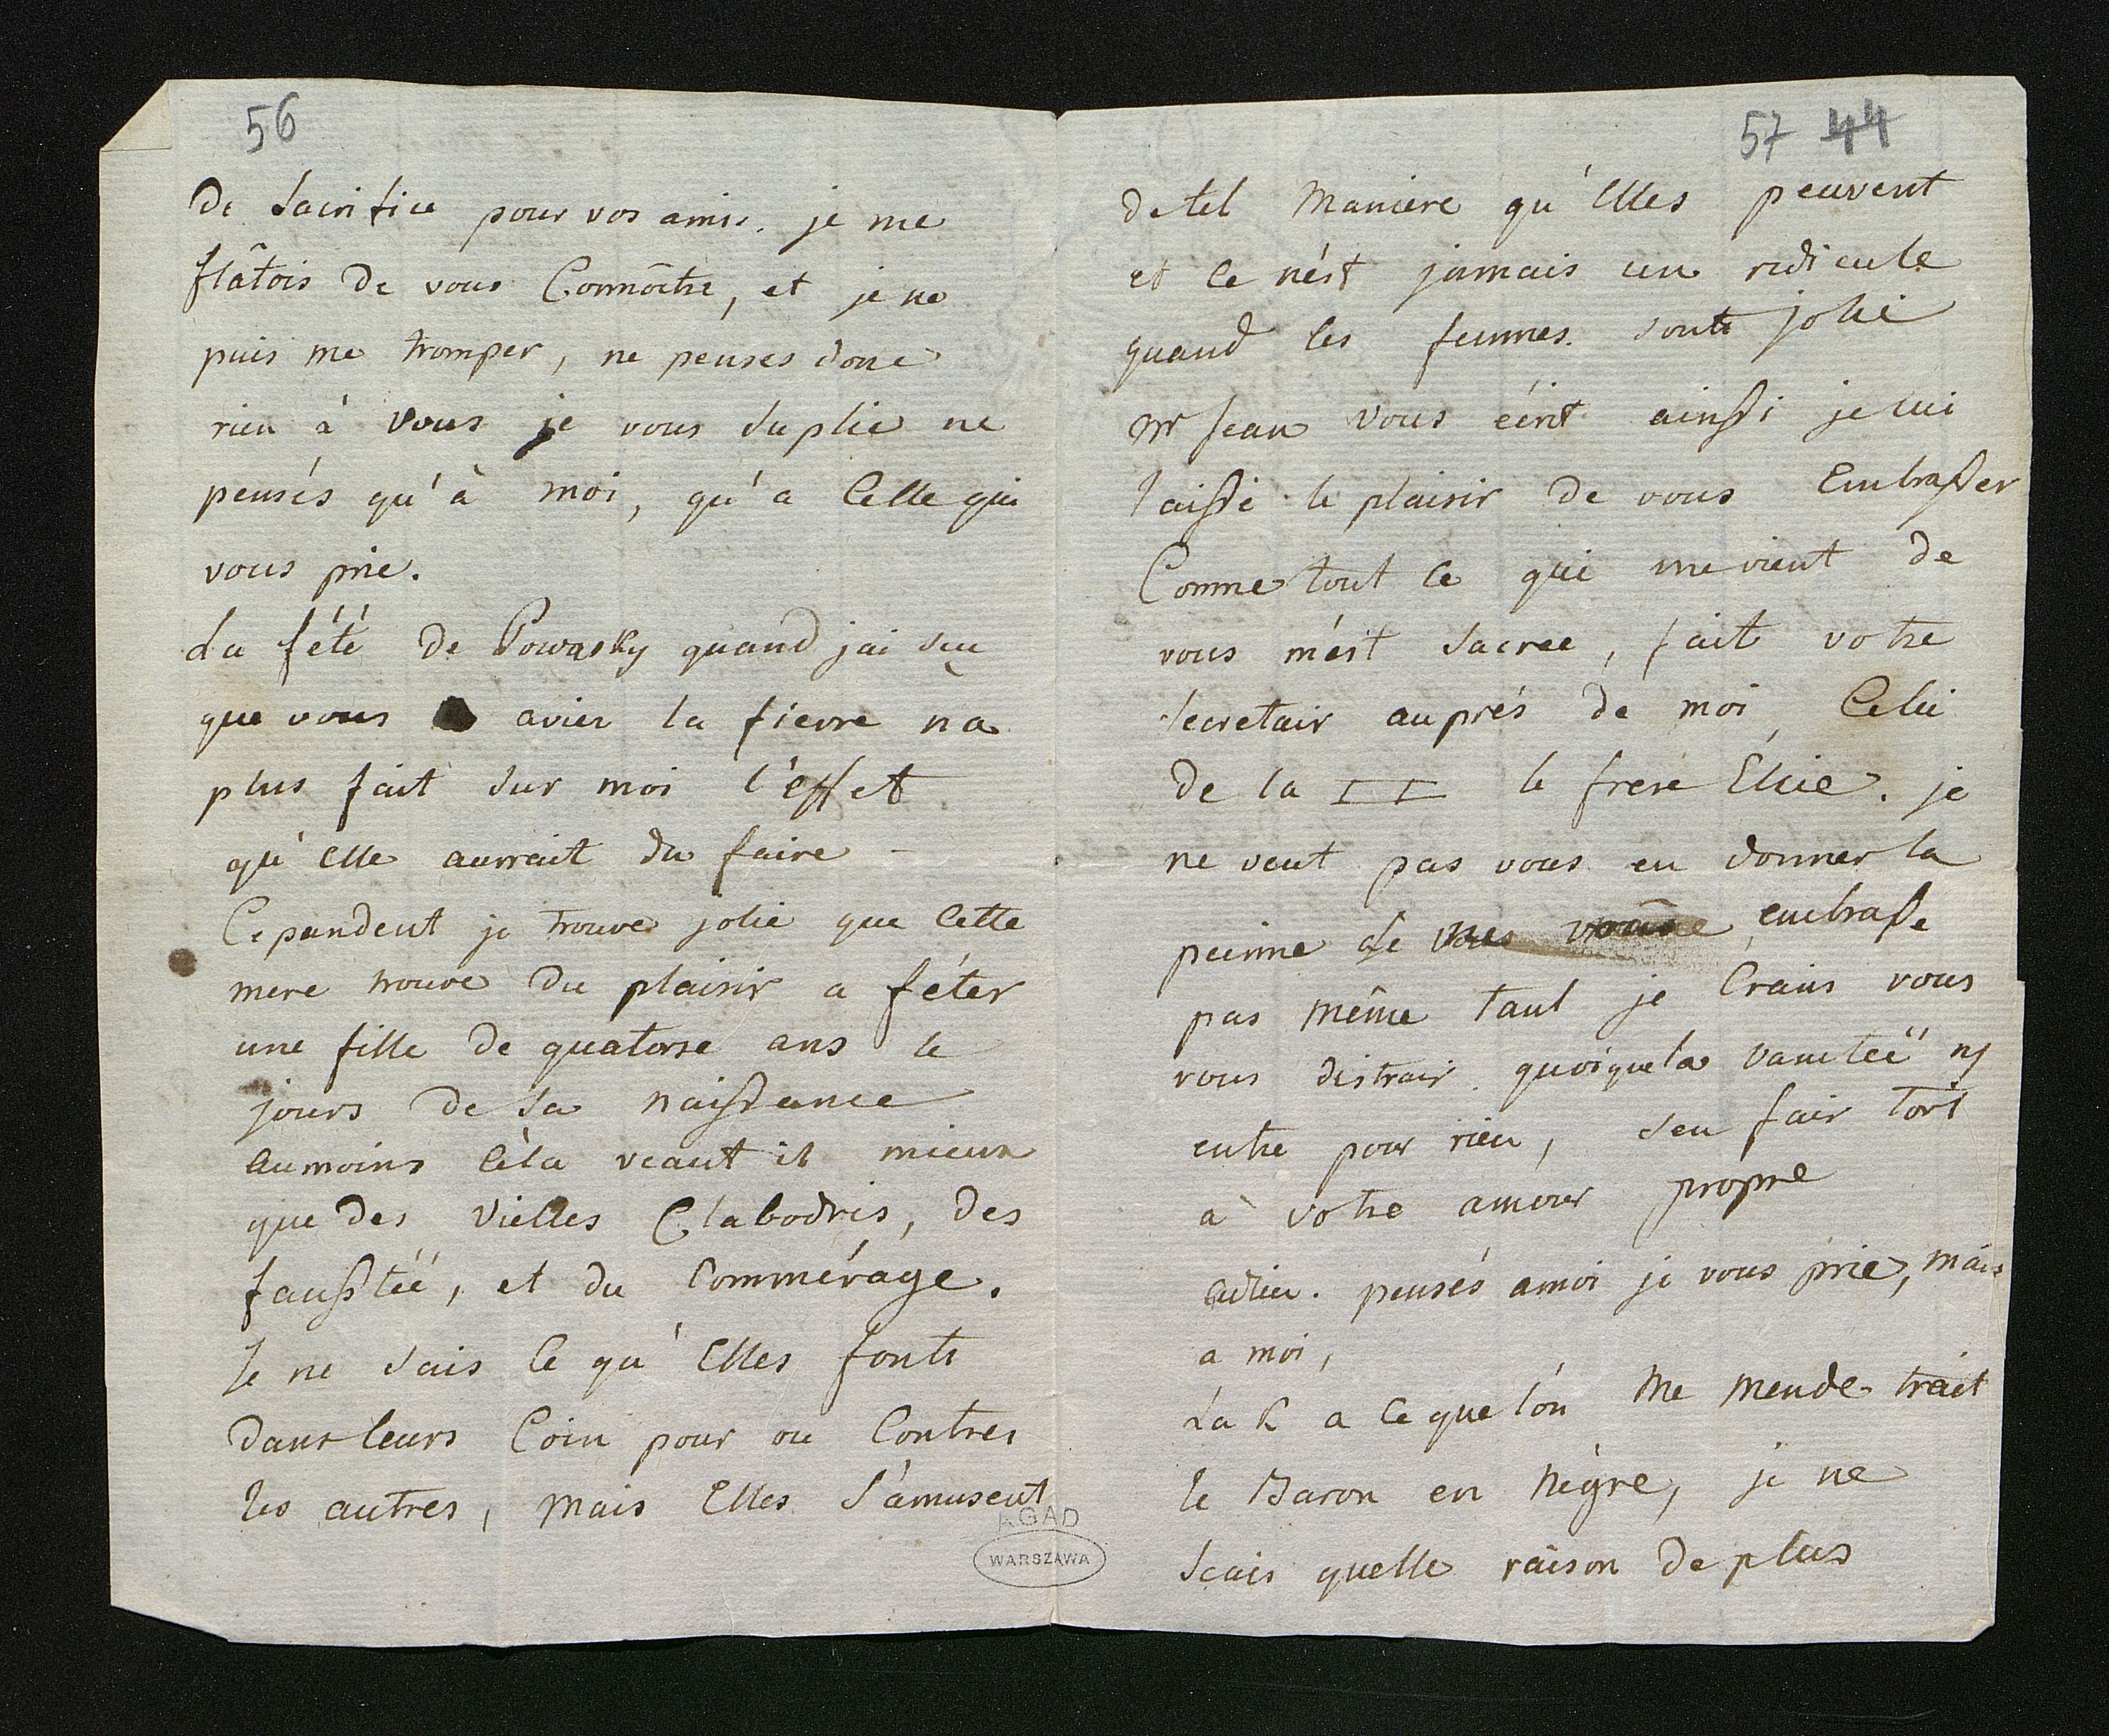 56
de sacrifice pour vos amis. je me
flâtois de vous Connoître, et je ne
puis me tromper, ne penses donc
rien à vous je vous suplie ne
pensés qu'à moi, qu'a Celle qui
vous prie.
La fété de Powasky quand jai scu
que vous aviez la fievre na
plus fait sur moi l'effet
qu'elle aurrait du faire -
Cepandent je trouve jolie que Cette
mere trouve du plaisir a féter
une fille de quatorse ans le
jours de sa naissance
aumoins Cèla veaut il mieux
que des vielles Clabodris, des
faussteé, et du Commérage.
Je ne sais Ce qu'Elles fonts
dans leurs Coin pour ou Contres
les autres, mais Elles s'ámusent
AGAD
WARSZAWA
57 44
de tel maniere qu'Elles peuvent
et Ce nést jamais un ridicule
quand les femmes sonts jolie
Mr Jean vous écrit ainssi je lui
laisse le plaisir de vous Embrasser
Comme tout Ce qui me vient de
vous mést sacree, fait votre
secretair auprés de moi, Celui
de la II le frere Elie. je
ne veut pas vous en donner la
peinne de embrasse
pas même tant je Crains vous
vous distrair. quoique la vaniteé ny
entre pour rien, sen fair tort
a votre amour propre
adieu. pensés amoi je vous prie, mais
a moi,
La K a Ce que lón me mende trait
le Baron en Négre, je ne
scais quelle raison de plus